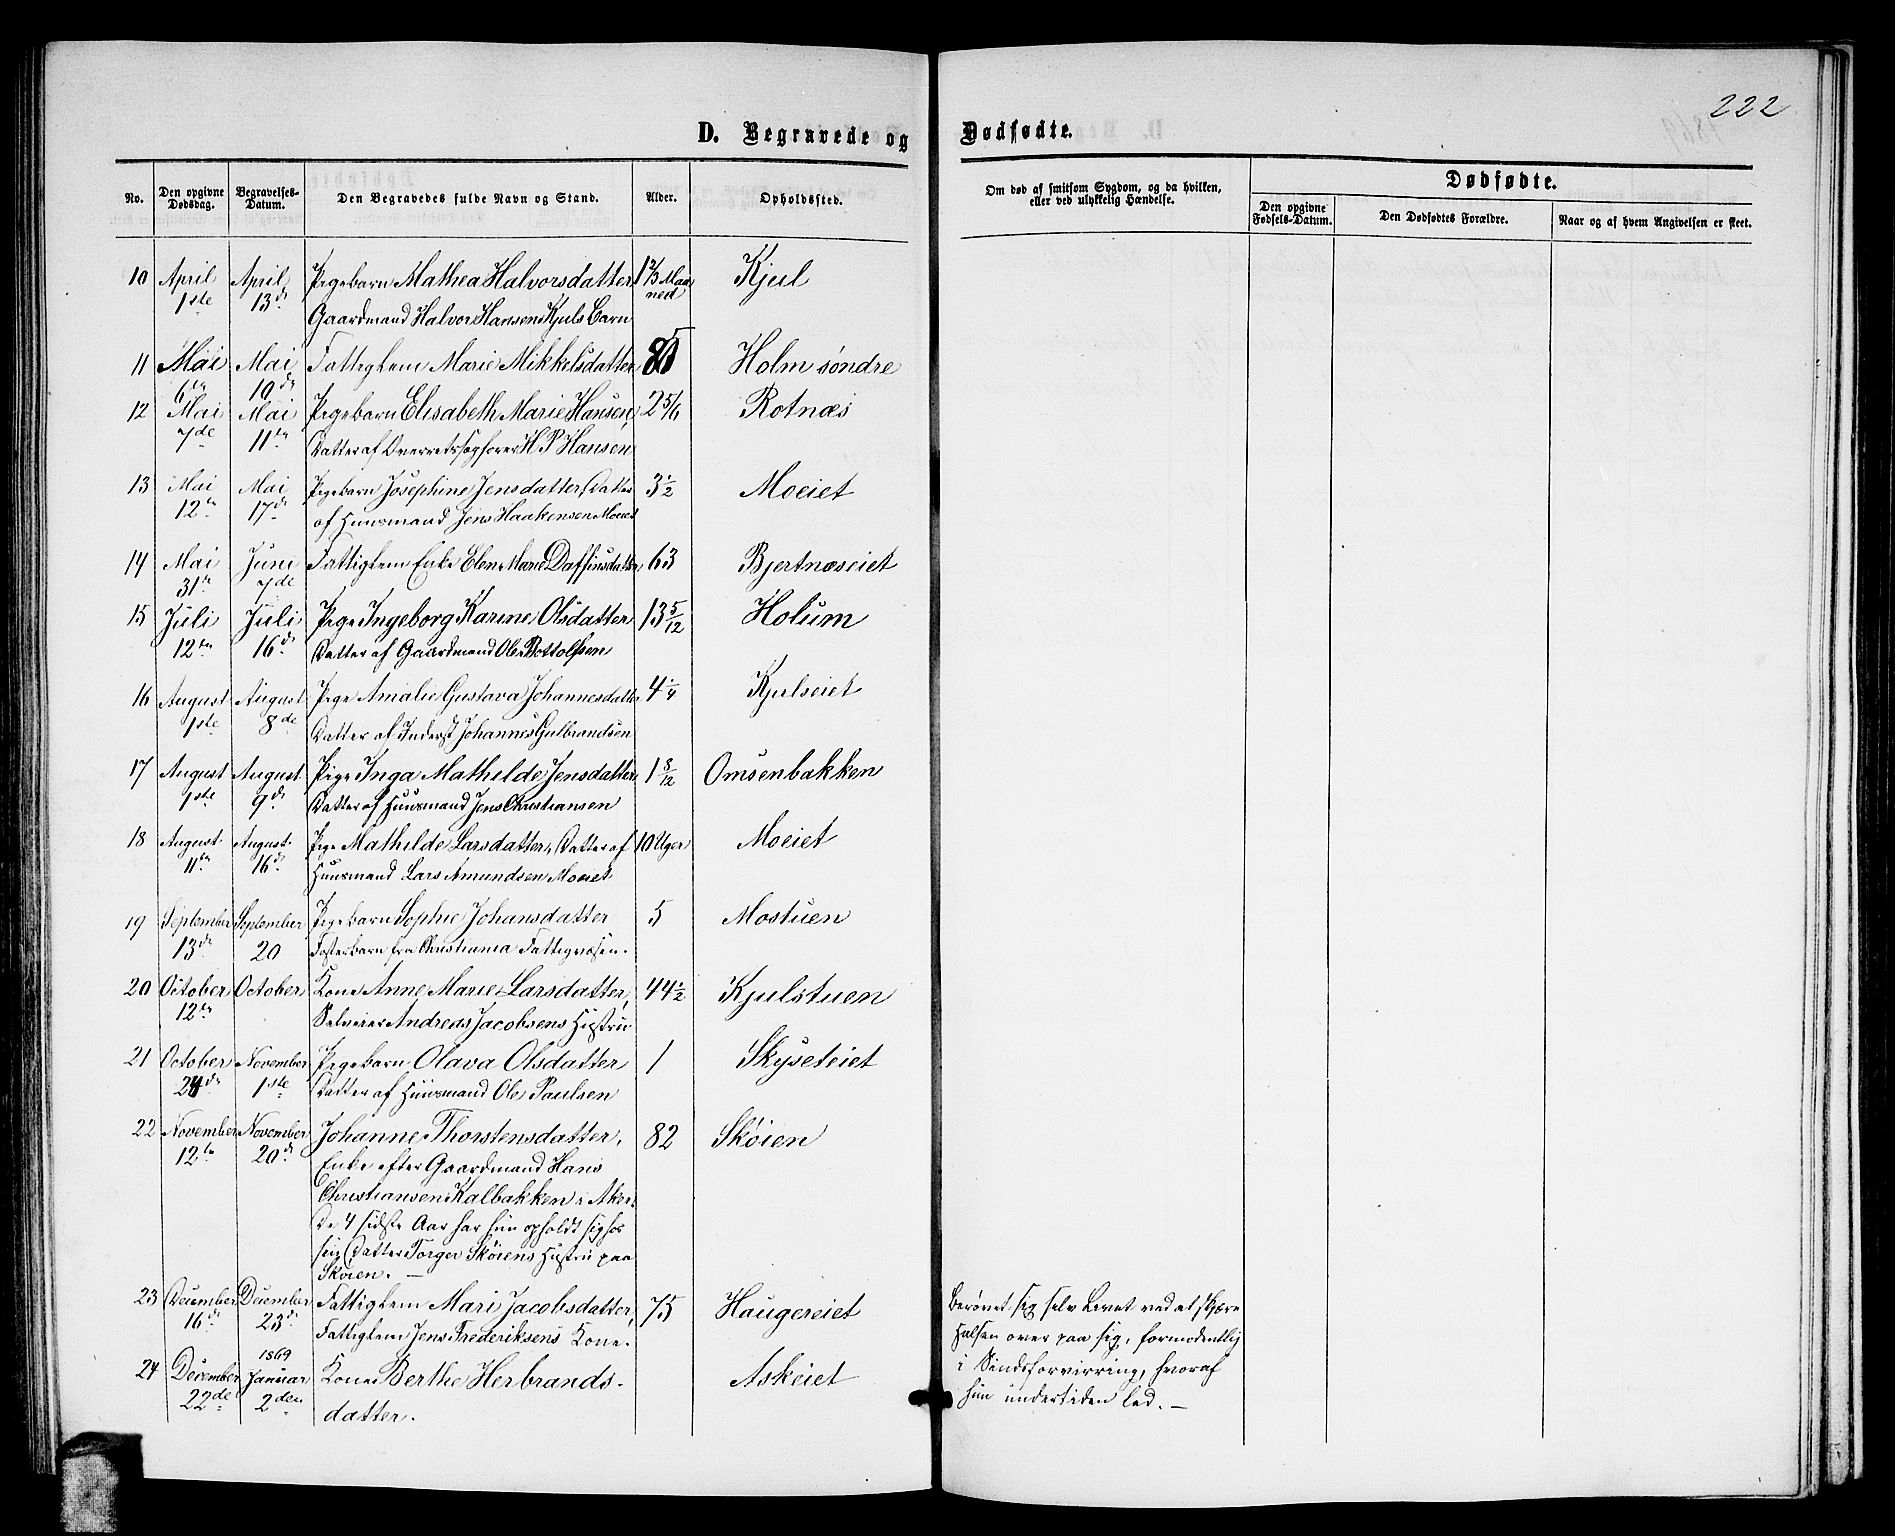 222
D. Begravede og Dødfødte.
No. Den opgivne Dødsdag. Begravelses-Datum. Den Begravedes fulde Navn og Stand. Alder. Opholdssted. Om død af smitsom Sygdom, og da hvilken, eller ved ulykkelig Hændelse. Dødfødte.
Den opgivne Fødsels-Datum. Den Dødfødtes Forældre. Naar og af hvem Angivelsen er skeet.
10 April April Pigebarn Mathea Halvorsdatter 1 2/3 Maaned Kjul
1ste 13de Gaardmand Halvor Hansen Kjuls Barn
11 Mai Mai Fattiglem Marie Mikkelsdatter 85 Holm søndre
6te 10de
12 Mai Mai Pigebarn Elisabeth Marie Hansen, 2 5/6 Rotnæs
7de 11te Datter af Overretssagfører H P Hansen
13 Mai Mai Pigebarn Josephine Jensdatter, Datter 3 1/2 Moeiet
12te 17de af Huusmand Jens Haakensen Moeiet
14 Mai Juni Fattiglem Enke Elen Marie Daffinsdatter 63 Bjertnæseiet
31te 7de
15 Juli Juli Pige Ingeborg Karine Olsdatter 13 5/12 Holum
12te 16de Datter af Gaardmand Ole Bottolfsen
16 August August Pige Amalie Gustava Johannesdatter 4 1/4 Kjulseiet
1ste 8de Datter af Inderst Johannes Gulbrandsen
17 August August Pige Inga Mathilde Jensdatter, 1 8/12 Omsenbakken
1ste 9de Datter af Huusmand Jens Christiansen
18 August August Pige Mathilde Larsdatter, Datter af 10 Uger Moeiet
11te 16de Huusmand Lars Amundsen Moeiet
19 September September Pigebarn Sophie Johansdatter 5 Mostuen
13de 20 Fosterbarn fra Christiania Fattigvæsen.
20 October October Kone Anne Marie Larsdatter, 44 1/2 Kjulstuen
12te Selveier Andreas Jacobsens Hustru
21 October November Pigebarn Olava Olsdatter 1 Skyseteiet
24de 1ste Datter af Huusmand Ole Paulsen
22 November November Johanne Thorstensdatter, 82 Skøien
12te 20de Enke efter Gaardmand Hans
Christiansen Kalbakken i Aker.
De 4 sidste Aar har hun opholdt sig hos
sin Datter Torger Skøiens Hustru paa
Skøien. —
23 December December Fattiglem Mari Jacobsdatter, 75 Haugereiet Berøvet sig selv Livet ved at skjære
16de 23de Fattiglem Jens Frederiksens Kone. Halsen over paa sig, formodentlig
24 December 1869 Januar Kone Berthe Herbrands- Askeiet i Sindsforvirring, hvoraf
22de 2den datter. hun undertiden led. —